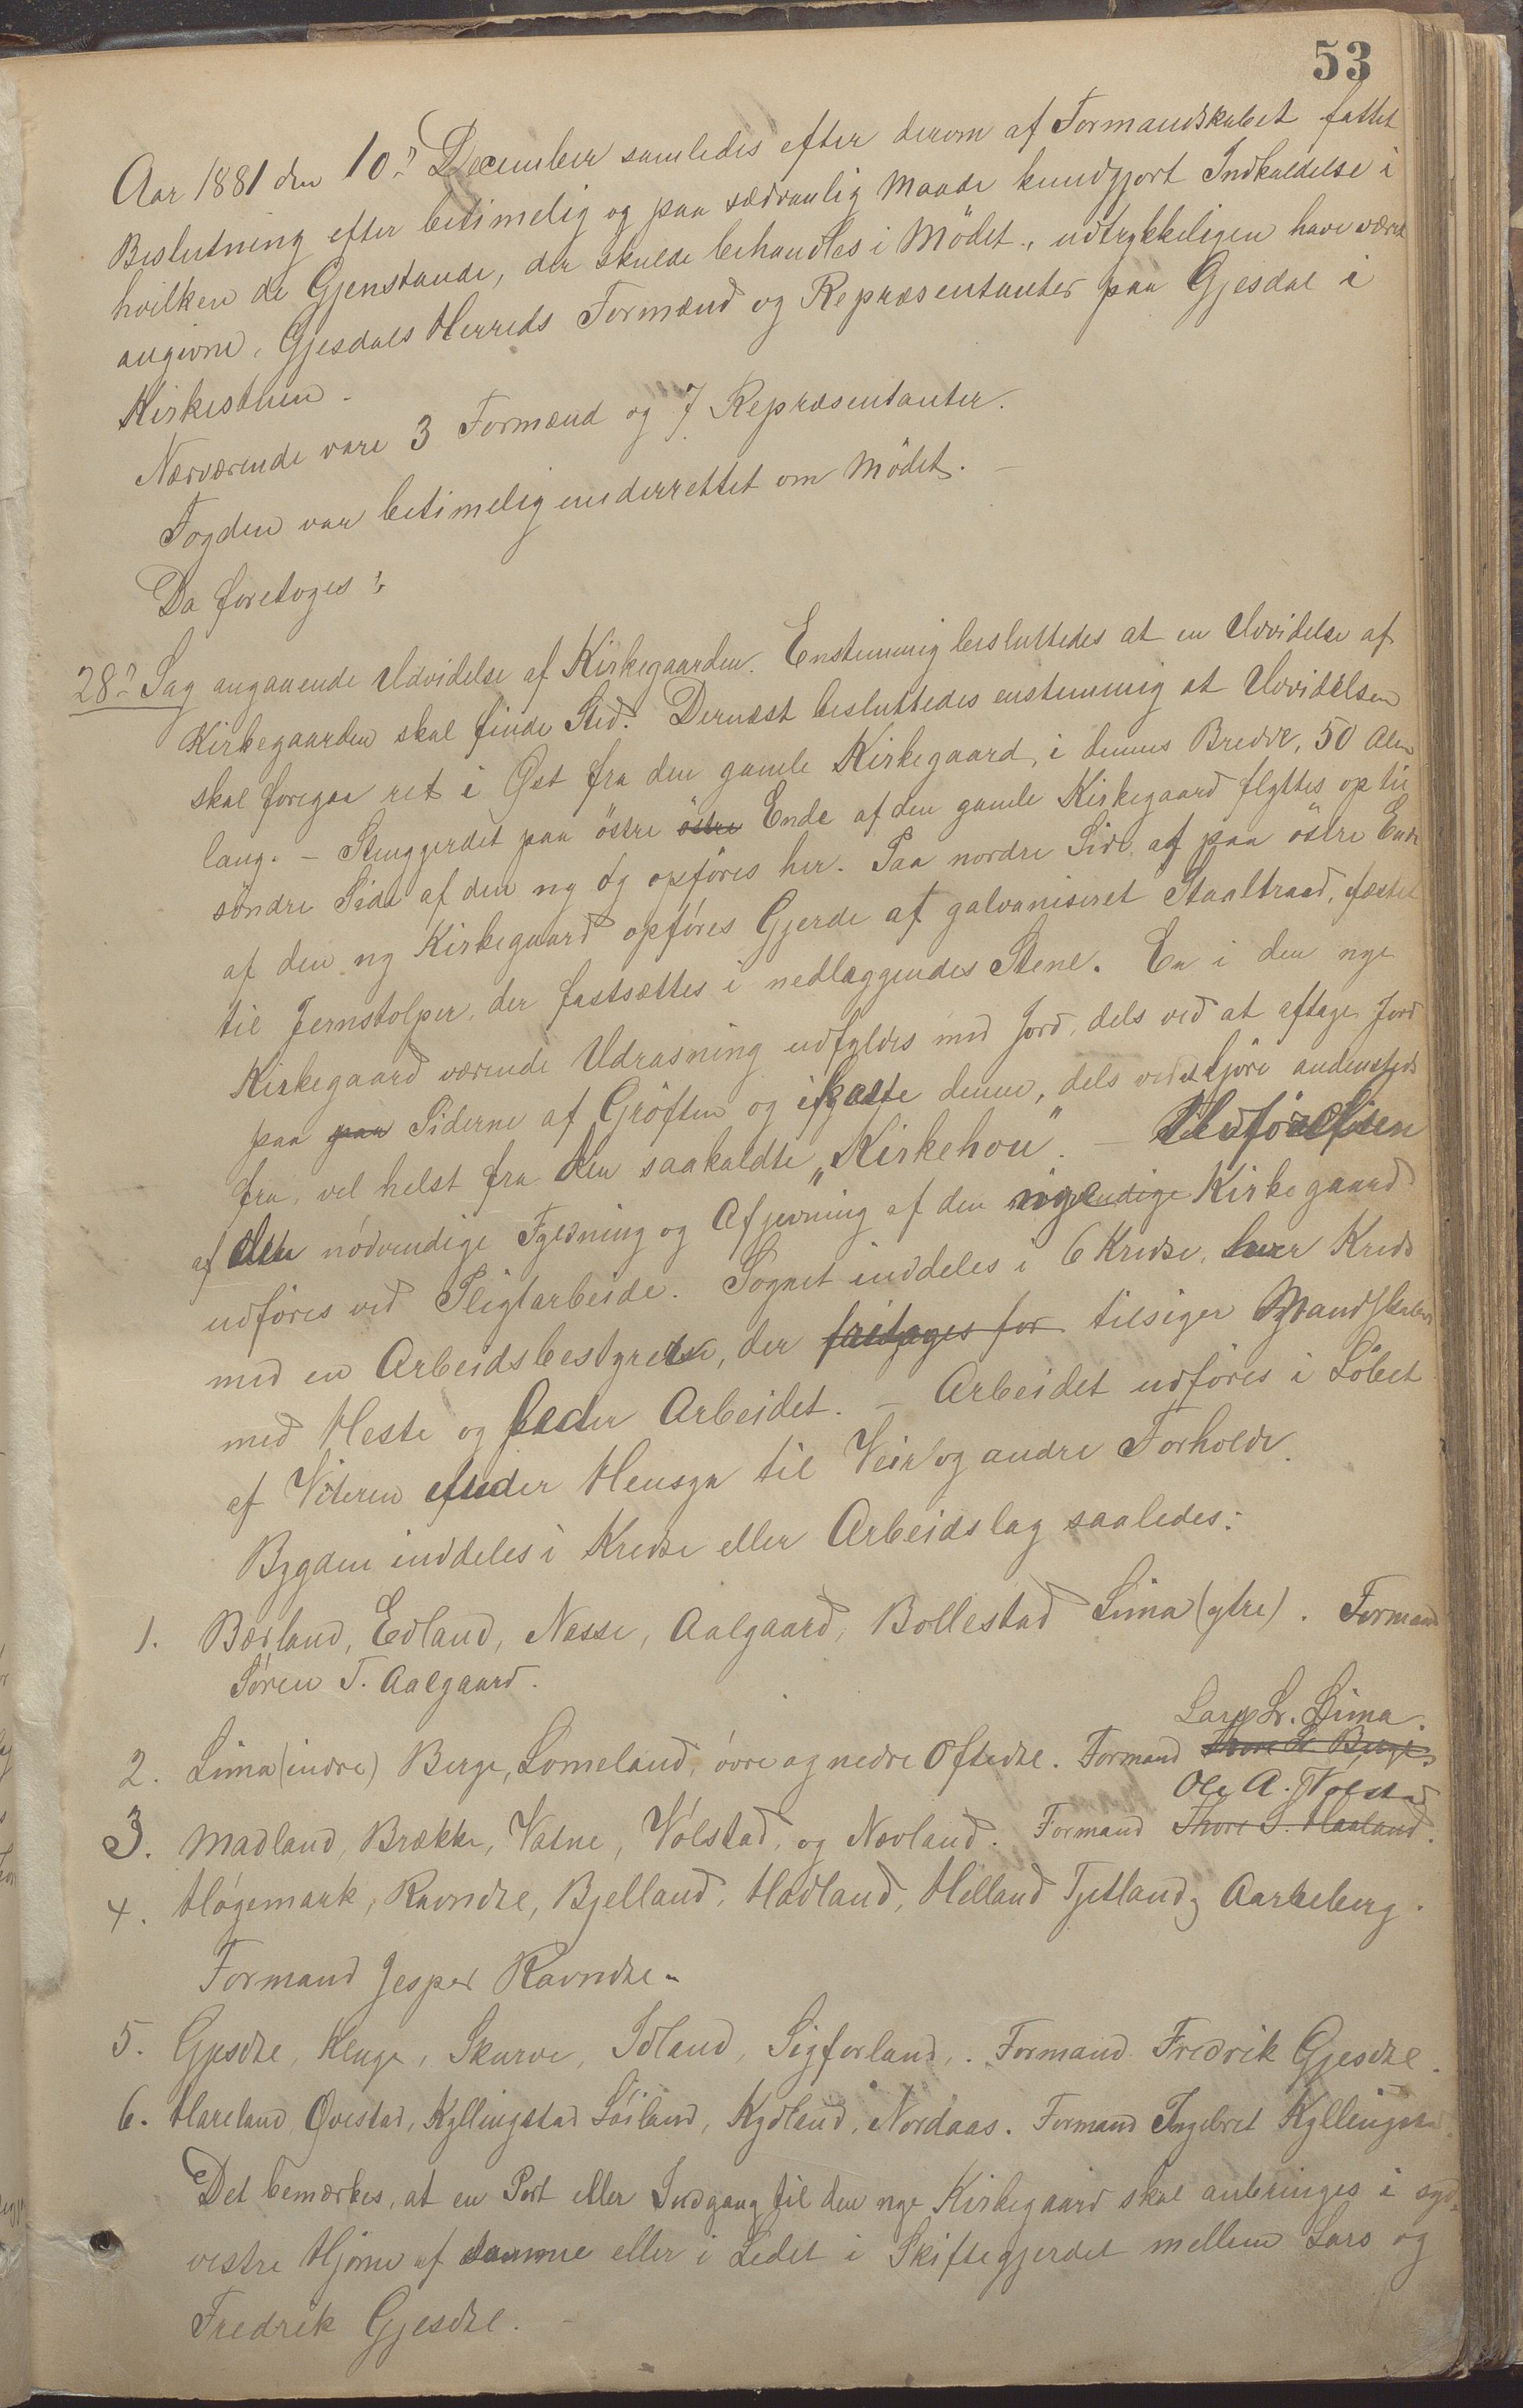 53
Aar 1881 den 10de December samledes efter derom af Formandskabet fattet
Beslutning efter betimelig og paa sædvanlig Maade kundgjort Indkaldelse i
hvilken de Gjenstande, der skulde behandles i Mödet, udtrykkeligen have været
angivne, Gjesdals Herreds Formænd og Repræsentanter paa Gjesdal i
Kirkesthuen.
Nærværende vare 3 Formænd og 7 Repræsentanter.
Fogden var betimelig underrettet om Mödet. –
Da foretoges:
28de Sag angaaende Udvidelse af Kirkegaarden. Enstemmig besluttedes at en Udvidelse af
Kirkegaarden skal finde Sted. Dernæst besluttedes enstemmig at Udvidelsen
skal foregaa ret i Øst fra den gamle Kirkegaard, i dennes Bredde, 50 Alen
lang. – Stenggerdet paa östre östre Ende af den gamle Kirkegaard flyttes op til
söndre Side af den ny og opföres her. Paa nordre Side og paa östre Ende
af den ny Kirkegaard opföres Gjerde af galvaniseret Staaltraad, fæstet
til Jernstolper, der fastsættes i nedlæggendes Stene. En i den nye
Kirkegaard værende Udrasning udfyldes med Jord, dels ved at aftage Jord
paa paa Siderne af Gröften og ikaste denne, dels ved at kjöre andensteds
fra, vel helst fra den saakaldte „Kirkehou". – Udförelsen
af den nödvendige Fyldning og Afjevning af den nye Kirkegaard
udföres ved Pligtarbeide. Sognet inddeles i 6 Kredse, hver Kreds
med en Arbeidsbestyrelse, der fritages for tilsiger Mandskaber
med Heste og leder Arbeidet. – Arbeidet udföres i Löbet
af Vinteren under Hensyn til Veir og andre Forholde.
Bygden inddeles i Kredse eller Arbeidslag saaledes:
1. Bærland, Edland, Næsse, Aalgaard, Bollestad Lima (ytre). Formand
Sören T. Aalgaard.
Lars Sr. Lima.
2. Lima (indre) Berge, Lomeland, övre og nedre Oftedal. Formand Thore Berge
Ole A. Volstad
3. Madland, Brække, Vatne, Völstad, og Nævland. Formand Thore S. Haaland.
4. Högemark, Ravndal, Bjelland, Hadland, Helland Tjetland og Aarreberg.
Formand Jesper Ravndal.
5. Gjesdal, Kluge, Skurve, Idland, Sigforland, . Formand Fredrik Gjesdal.
6. Hareland, Qvestad, Kyllingstad Söiland, Kydland, Nordaas. Formand Ingebret Kyllingstad.
Det bemærkes, at en Port eller Indgang til den nye Kirkegaard skal anbringes i syd-
vestre Hjörne af samme eller i Ledet i Skiftegjerdet mellem Lars og
Fredrik Gjesdal. –